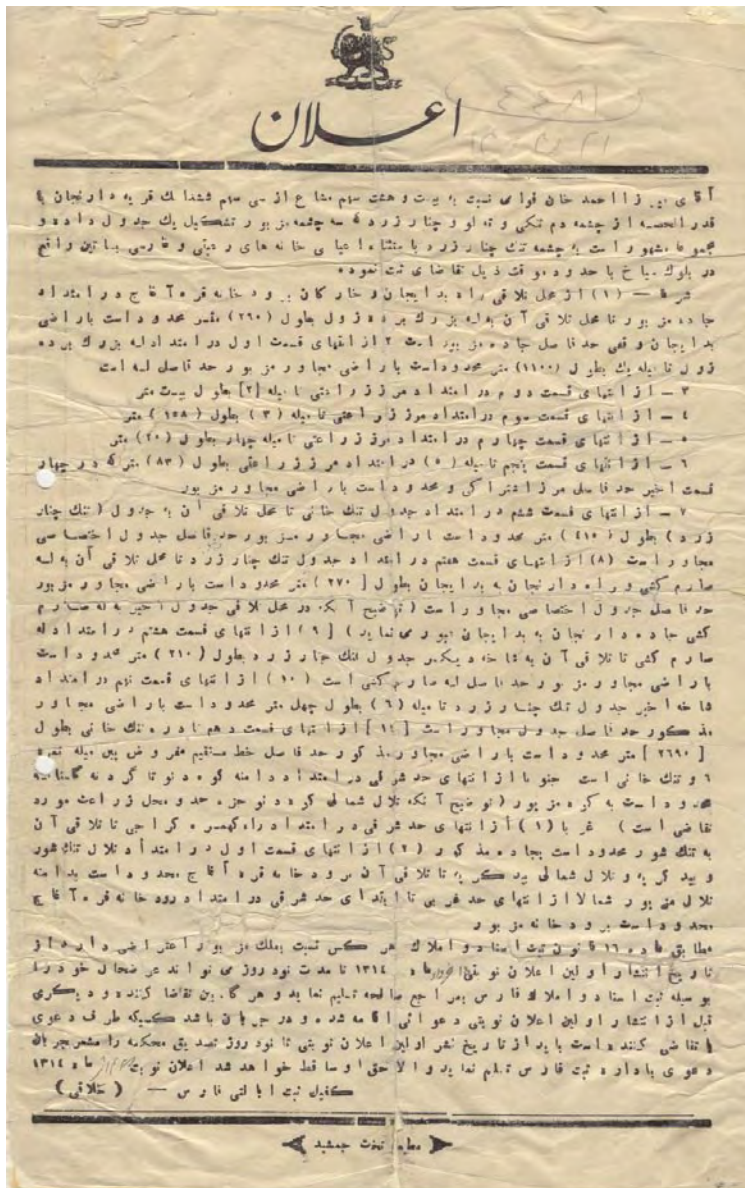 اعلان
آقای میرزا احمد خان قوامی نسبت به بیست و هشت سهم مشاع از سی سهم ششدانگ قریه دارنجان با
قدر الحصه از چشمه دم تنگی و تولو و چنار زرد که سه چشمه مزبور تشکیل یک جدول داده و
مجموعا مشهور است به چشمه تنک چنار زرد باستثناء اعیانی خانه های رعیتی و غارسی بساتین واقع
در بلوک سیاخ با حدود موقت ذیل تقاضای ثبت نموده
شرقا — (۱) از محل تلاقی راه بدایجان و خارکان برودخانه قره آقاج در امتداد
جاده مزبور تا محل تلاقی آن به لبه بزرک برده زول بطول (۲۶۰) متر محدود است باراضی
بدایجان وقفی حد فاصل جاده مزبور است ۲ از انتهای قسمت اول در امتداد لبه بزرک برده
زول تا میله یک بطول (۱۱۰۰) متر محدود است باراضی مجاور مزبور حد فاصل لبه است
۳ – از انتهای قسمت دوم در امتداد مرز زراعتی تا میله [۲] بطول بیست متر
٤ – از انتهای قسمت سوم در امتداد مرز زراعتی تا میله (۳) بطول (۱۵۸) متر
۵ – از انتهای قسمت چهارم در امتداد مرز زراعتی تا میله چهار بطول (۲۰) متر
٦ – از انتهای قسمت پنجم تا میله (۵) در امتداد مرز زراعتی بطول (۸۳) متر که در چهار
قسمت اخیر حد فاصل مرز اشتراکی و محدود است باراضی مجاور مزبور
۷ – از انتهای قسمت ششم در امتداد جدول تنک خانی تا محل تلاقی آن به جدول (تنک چنار
زرد) بطول (٤۱۰) متر محدود است باراضی مجاور مزبور حد فاصل جدول اختصاصی
مجاور است (۸) از انتهای قسمت هفتم در امتداد جدول تنک چنار زرد تا محل تلاقی آن به لبه
صارم کشی و راه دارنجان به بدایجان بطول [۲۷۰) متر محدود است باراضی مجاور مزبور
حد فاصل جدول اختصاصی مجاور است (توضیح آنکه در محل تلاقی جدول اخیر به لبه صارم
کشی جاده دارنجان به بدایجان عبور می نماید) [۹) از انتهای قسمت هشتم در امتداد لبه
صارم کشی تا تلاقی آن به شاخه دیگر جدول تنک چنار زرد بطول (۲۱۰) متر محدود است
باراضی مجاور مزبور حد فاصل لبه صارم کشی است (۱۰) از انتهای قسمت نهم در امتداد
شاخه اخیر جدول تنک چنار زرد تا میله (٦) بطول چهل متر محدود است باراضی مجاور
مذکور حد فاصل جدول مجاور است [۱۱] از انتهای قسمت دهم تا دره تنک خانی بطول
[۲٦۹۰] متر محدود است باراضی مجاور مذکور حد فاصل خط مستقیم مفروض بین میله نمره
٦ و تنک خانی است جنوبا از انتهای حد شرقی در امتداد دامنه کوه دنو تا گردنه
محدود است به کوه مزبور (توضیح آنکه تلال شمالی کوه دنو جزء حد و محل زراعت مورد
تقاضی است) غربا (۱) از انتهای حد شرقی در امتداد راه کهمره کراجی تا تلاقی آن
به تنک شور محدود است بجاده مذکور (۲) از انتهای قسمت اول در امتداد تلال تنک شور
و بید کربه و تلال شمالی بید کربه تا تلاقی آن برودخانه قره آقاج محدود است بدامنه
تلال مزبور شمالا از انتهای حد غربی تا ابتدای حد شرقی در امتداد رودخانه قره آقاج
محدود است برودخانه مزبور
مطابق ماده ۱٦ قانون ثبت اسناد و املاک هر کس نسبت بملک مزبور اعتراضی دارد از
تاریخ انتشار اولین اعلان نوبتی ماه ۱۳۱٤ تا مدت نود روز می تواند عرضحال خود را
بوسیله ثبت اسناد و املاک فارس بمراجع صالحه تسلیم نماید و هرگاه بین تقاضا کننده و دیگری
قبل از انتشار اولین اعلان نوبتی دعوائی اقامه شده و در جریان باشد کسیکه طرف دعوی
با تقاضی کننده است باید از تاریخ نشر اولین اعلان نوبتی تا نود روز تصدیق محکمه را مشعر بجریان
دعوی باداره ثبت فارس تسلیم نماید والا حق او ساقط خواهد شد اعلان نوبتی ماه ۱۳۱٤
کفیل ثبت ایالتی فارس — (خلاقی)
مطبعه تخت جمشید